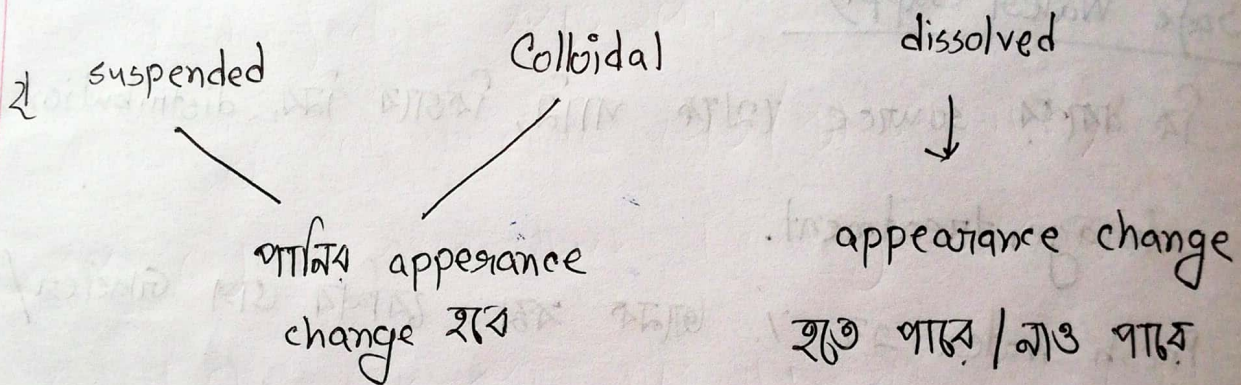 suspended
Colloidal
dissolved
পানির apperance
change হবে
appearance change
হতে পারে / নাও পারে